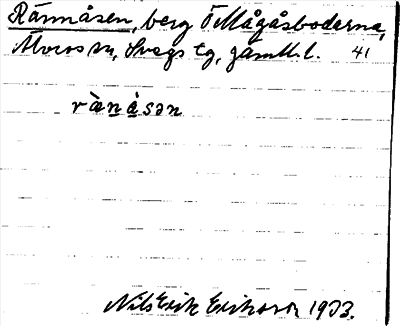 Rännåsen, berg Ö Mågåsboderna,
Älvros sn, Svegs tg, Jämtl. l. 41
rὰnåsən
Nils Erik Erikson 1933.